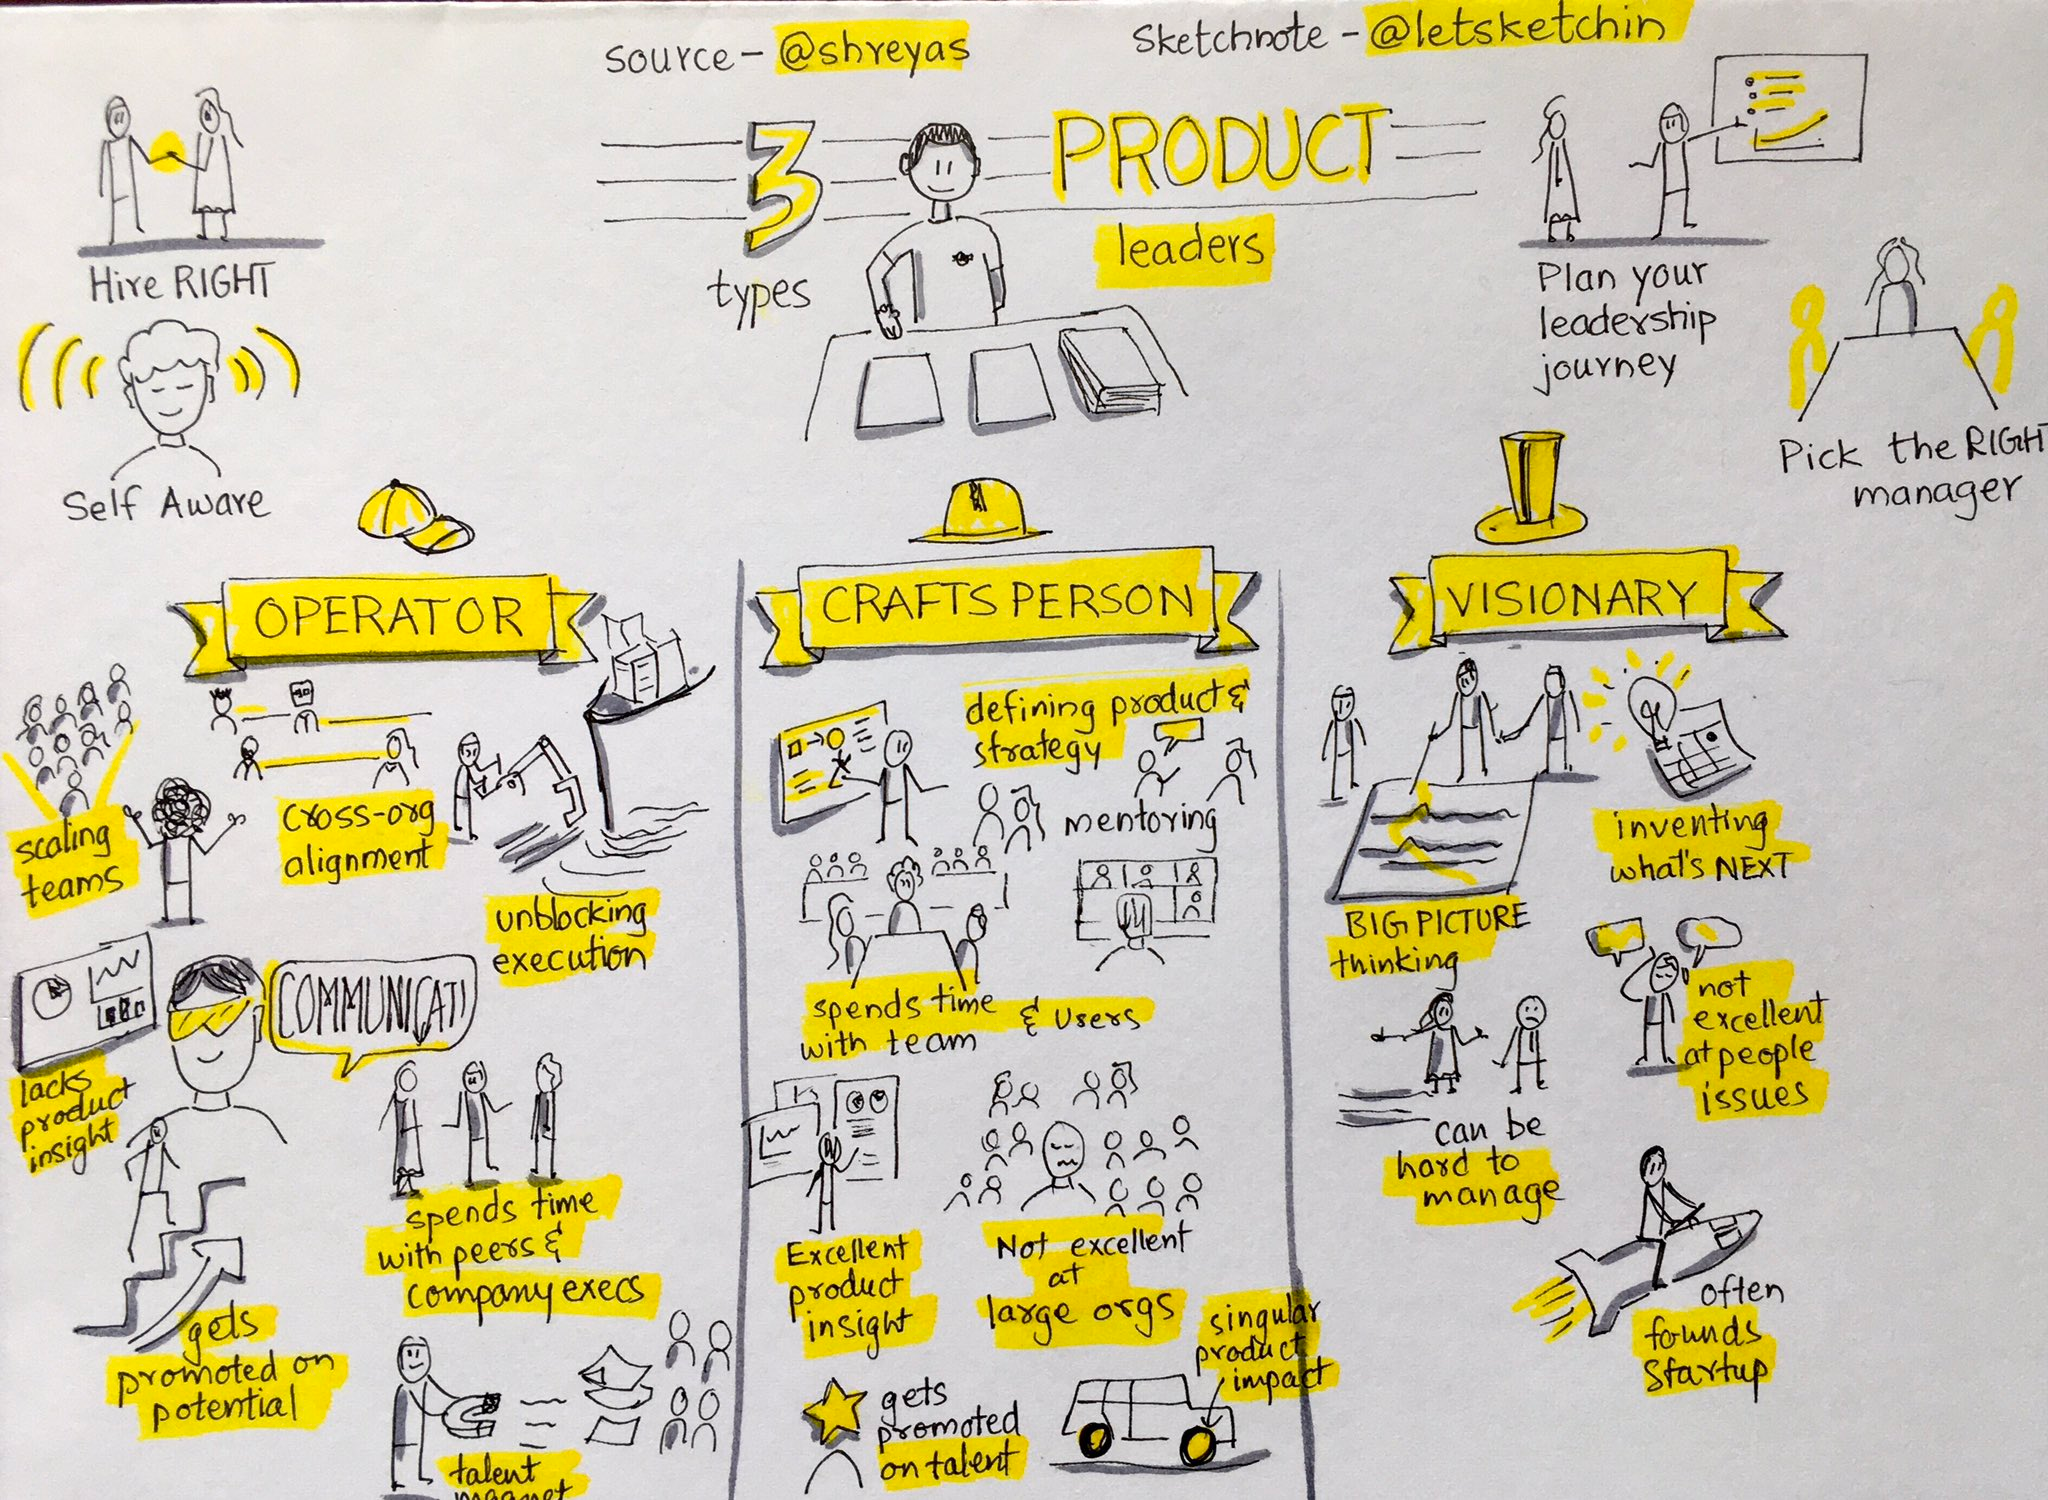 source - @shreyas
Sketchnote - @letsketchin
3
types
PRODUCT
leaders
Hire RIGHT
Self Aware
Plan your
leadership
journey
Pick the RIGHT
manager
OPERATOR
scaling
teams
cross-org
alignment
unblocking
execution
COMMUNICATI
lacks
product
insight
spends time
with peers &
company execs
gets
promoted on
potential
talent
magnet
CRAFTS PERSON
defining product &
strategy
mentoring
spends time
with team
& users
Excellent
product
insight
Not excellent
at
large orgs
gets
promoted
on talent
singular
product
impact
VISIONARY
BIG PICTURE
thinking
inventing
what's NEXT
not
excellent
at people
issues
can be
hard to
manage
often
founds
startup